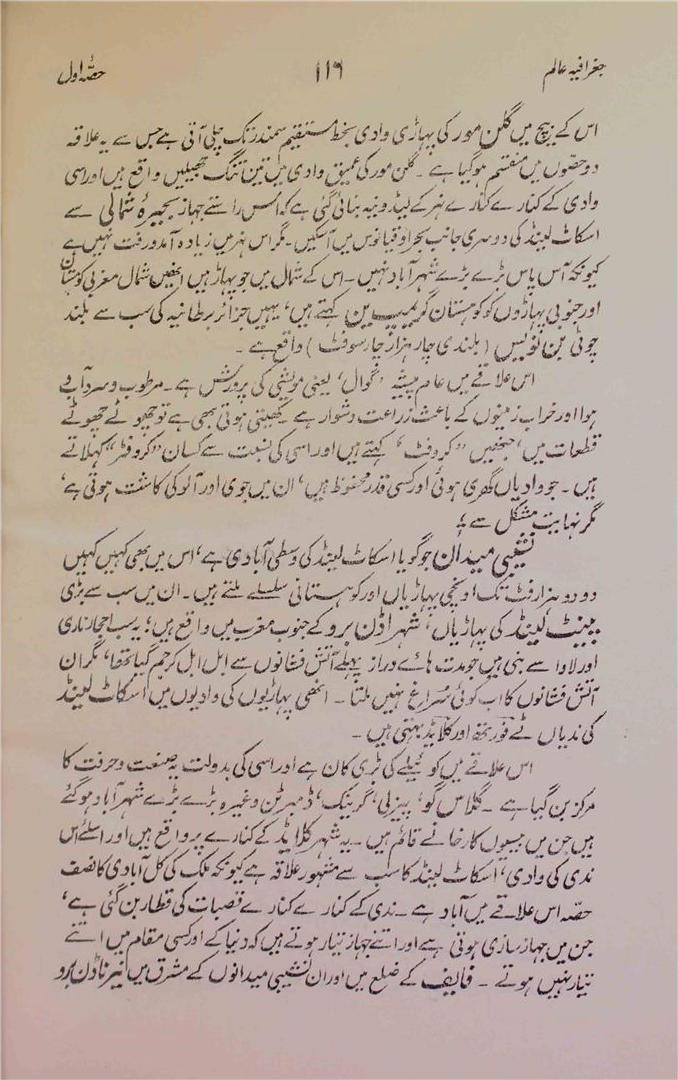 جغرافیہ عالم ۱۱۶ حصّہ اول
اس کے بیچ میں گلن مور کی پہاڑی وادی بخط مستقیم سمندر تک چلی آتی ہے جس سے یہ علاقہ
دو حصّوں میں منقسم ہوگیا ہے ۔ گلن مور کی عمیق وادی میں تین تنگ جھیلیں واقع ہیں اور اسی
وادی کے کنارے کنارے نہر کے لیڈونیہ بنائی گئی ہے کہ اس راستے جہاز بحیرۂ شمالی سے
اسکاٹ لینڈ کی دوسری جانب بحر اوقیانوس میں آسکیں ۔ مگر اس نہر میں زیادہ آمد و رفت نہیں ہے
کیونکہ آس پاس بڑے بڑے شہر آباد نہیں ۔ اس کے شمال میں جو پہاڑ ہیں انھیں شمال مغربی کوہستان
اور جنوبی پہاڑوں کو کوہستان گریمپین کہتے ہیں ، یہیں جزائر برطانیہ کی سب سے بلند
چوٹی بن نویس ( بلندی چار ہزار چار سو فٹ ) واقع ہے ۔
اس علاقے میں عام پیشہ ” گوال ، یعنی مویشی کی پرورش ہے ۔ مرطوب و سرد آب و
ہوا اور خراب زمینوں کے باعث زراعت دشوار ہے ۔ کھیتی ہوتی بھی ہے تو چھوٹے چھوٹے
قطعات میں ، جنھیں ” کروفٹ “ کہتے ہیں اور اسی کی نسبت سے کسان ” کروفٹر “ کہلاتے
ہیں ۔ جو وادیاں گھری ہوئی اور کسی قدر محفوظ ہیں ، ان میں جوی اور آلو کی کاشت ہوتی ہے ،
مگر نہایت مشکل سے ؛
نشیبی میدان جو گویا اسکاٹ لینڈ کی وسطی آبادی ہے ، اس میں بھی کہیں کہیں
دو دو ہزار فٹ تک اونچی پہاڑیاں اور کوہستانی سلسلے ملتے ہیں ۔ ان میں سب سے بڑی
پینٹ لینڈ کی پہاڑیاں ، شہر اڈن برو کے جنوب مغرب میں واقع ہیں ؛ یہ سب احجار ناری
اور لاوا سے بنی ہیں جو مدت ہائے دراز پہلے آتش فشانوں سے ابل ابل کر جم گیا تھا ، مگر ان
آتش فشانوں کا اب کوئی سُراغ نہیں ملتا ۔ انھی پہاڑیوں کی وادیوں میں اسکاٹ لینڈ
کی ندیاں ٹے فورتھ اور کلایڈ بہتی ہیں ۔
اس علاقے میں کوئیلے کی بڑی کان ہے اور اسی کی بدولت یہ صنعت و حرفت کا
مرکز بن گیا ہے ۔ گلاس گو ، پیزلی ، گرینک ، ڈمبرٹن وغیرہ بڑے بڑے شہر آباد ہو گئے
ہیں جن میں بیسیوں کارخانے قائم ہیں ۔ یہ شہر کلایڈ کے کنارے پر واقع ہیں اور اسلئے اس
ندی کی وادی ، اسکاٹ لینڈ کا سب سے مشہور علاقہ ہے کیونکہ ملک کی کل آبادی کا نصف
حصّہ اس علاقے میں آباد ہے ۔ ندی کے کنارے کنارے قصبات کی قطار بن گئی ہے ،
جن میں جہاز سازی ہوتی ہے اور اتنے جہاز تیار ہوتے ہیں کہ دنیا کے اور کسی مقام میں اتنے
تیار نہیں ہوتے ۔ فایف کے ضلع میں اور ان نشیبی میدانوں کے مشرق میں نیز نا ڈن برو